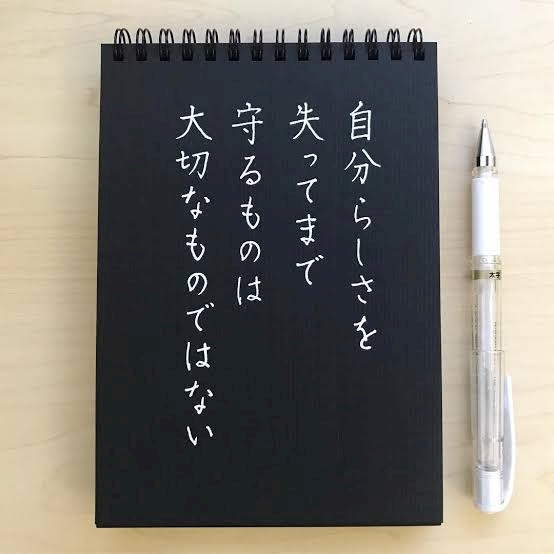 自分らしさを
失ってまで
守るものは
大切なものではない
太字